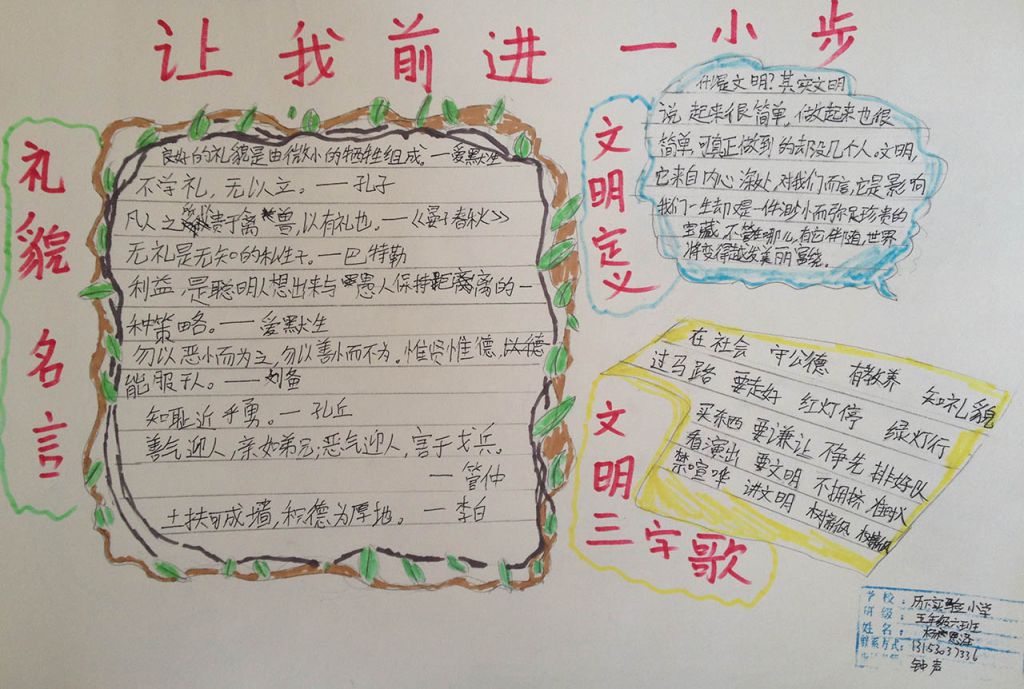 让我前进一小步
礼貌名言
良好的礼貌是由微小的牺牲组成。—爱默生
不学礼，无以立。——孔子
凡人之贵于禽兽，以有礼也。—《晏子春秋》
无礼是无知的私生子。—巴特勒
利益，是聪明人想出来与愚人保持距离的一
种策略。——爱默生
勿以恶小而为之，勿以善小而不为。惟贤惟德，
能服于人。——刘备
知耻近乎勇。—孔丘
善气迎人，亲如弟兄；恶气迎人，害于戈兵。
—管仲
土扶可成墙，积德为厚地。—李白
文明定义
什是文明？其实文明
说起来很简单，做起来也很
简单，可真正做到的却没几个人。文明，
它来自内心深处，对我们而言，它是影响
我们一生却是一件渺小而弥足珍贵的
宝藏，不管哪儿，有它伴随，世界
将变得越发美丽富饶。
文明三字歌
在社会 守公德 有教养 知礼貌
过马路 要走好 红灯停 绿灯行
买东西 要谦让 不争先 排好队
看演出 要文明 不拥挤
禁喧哗 讲文明 树新风 树新风
学校：历下实验小学
班级：五年级六班
姓名：杨
联系方式：13153037336
钟声